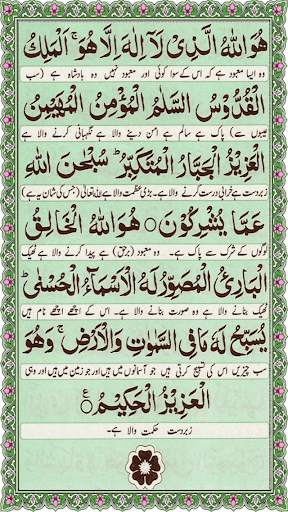 هُوَاللهُ الَّذِىْ لَآ اِلٰهَ اِلَّا هُوَ ۚ اَلْمَلِكُ
وہ ایسا معبود ہے کہ اس کے سوا کوئی اور معبود نہیں وہ بادشاہ ہے (سب
الْقُدُّوْسُ السَّلٰمُ الْمُؤْمِنُ الْمُهَيْمِنُ
عیبوں سے) پاک ہے سالم ہے امن دینے والا ہے نگہبانی کرنے والا ہے
الْعَزِيْزُ الْجَبَّارُ الْمُتَكَبِّرُ ؕ سُبْحٰنَ اللهِ
زبردست ہے خرابی درست کرنے والا ہے۔ بڑی عظمت والا ہے اللہ تعالیٰ (جس کی شان یہ ہے)
عَمَّا يُشْرِكُوْنَ ○ هُوَاللهُ الْخَالِقُ
لوگوں کے شرک سے پاک ہے۔ وہ معبود (برحق) ہے پیدا کرنے والا ہے ٹھیک
الْبَارِئُ الْمُصَوِّرُ لَهُ الْاَسْمَآءُ الْحُسْنٰى ؕ
ٹھیک بنانے والا ہے وہ صورت بنانے والا ہے۔ اس کے اچھے اچھے نام ہیں
يُسَبِّحُ لَهٗ مَا فِى السَّمٰوٰتِ وَالْاَرْضِ ۚ وَهُوَ
سب چیزیں اس کی تسبیح کرتی ہیں جو آسمانوں میں ہیں اور جو زمین میں ہیں اور وہی
الْعَزِيْزُ الْحَكِيْمُ ○ ع
زبردست حکمت والا ہے۔